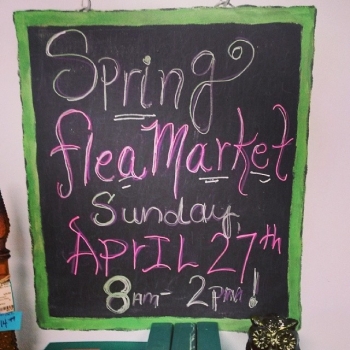 Spring
flea Market
Sunday,
APRIL 27th
8am - 2pm!
14.00